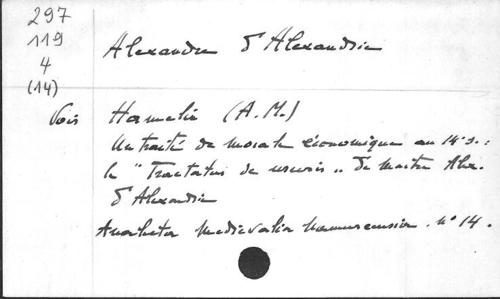 297
119
4
(14)
Alexandre d'Alexandrie
Vois Hamelin (A.M.)
Un traité de morale économique au 14e s. :
le "Tractatus de usuris" de Maître Alex.
d'Alexandrie
Analecta Mediaevalia Namurcensia. n° 14.